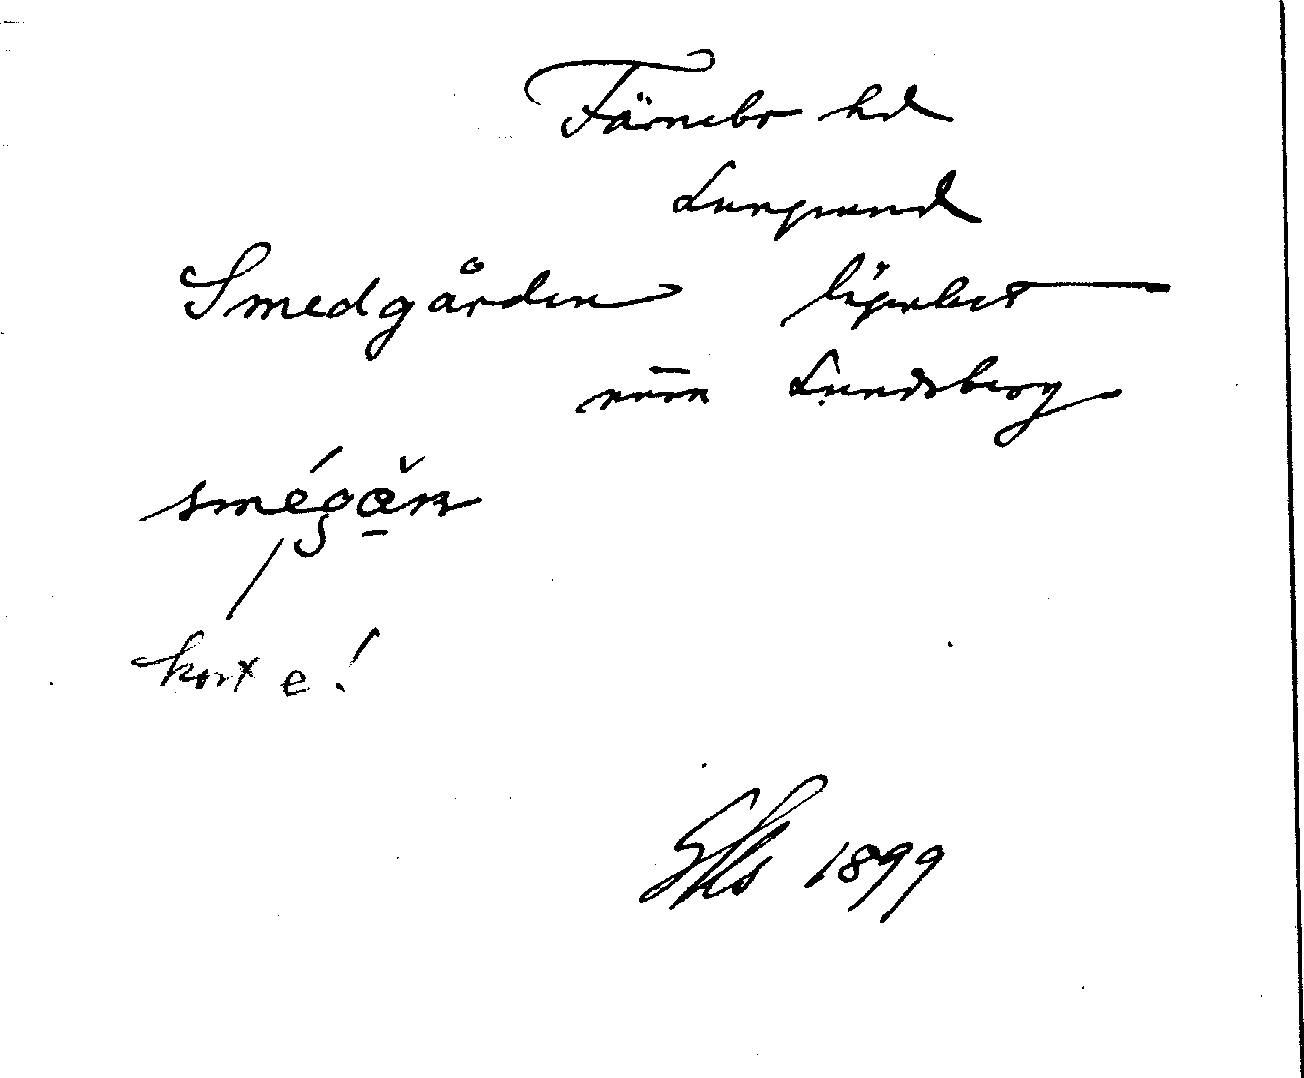 Färnebo hd
Lungsund
Smedgården lägenhet
under Lundsberg
smégă̱n
kort e!
Shs 1899